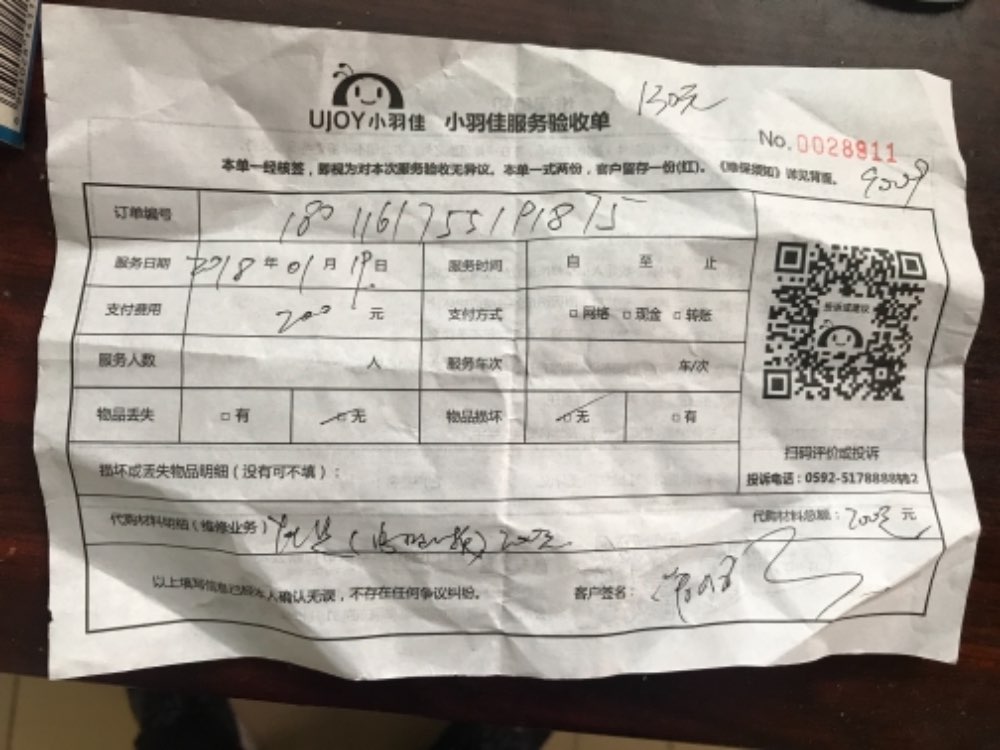 UJOY小羽佳 小羽佳服务验收单
130元
No. 0028911
本单一经核签，即视为对本次服务验收无异议。本单一式两份，客户留存一份(红)。《维保须知》详见背面。
订单编号 1801161755191875
服务日期 2018年01月19日 服务时间 自 至 止
支付费用 200元 支付方式 □网络 □现金 □转账
服务人数 人 服务车次 车/次
物品丢失 □有 □无 物品损坏 □无 □有
投诉或建议
扫码评价或投诉
投诉电话：0592-5178888转2
损坏或丢失物品明细（没有可不填）：
代购材料明细（维修业务） 200元 代购材料总额：200元 元
以上填写信息已经本人确认无误，不存在任何争议纠纷。 客户签名：